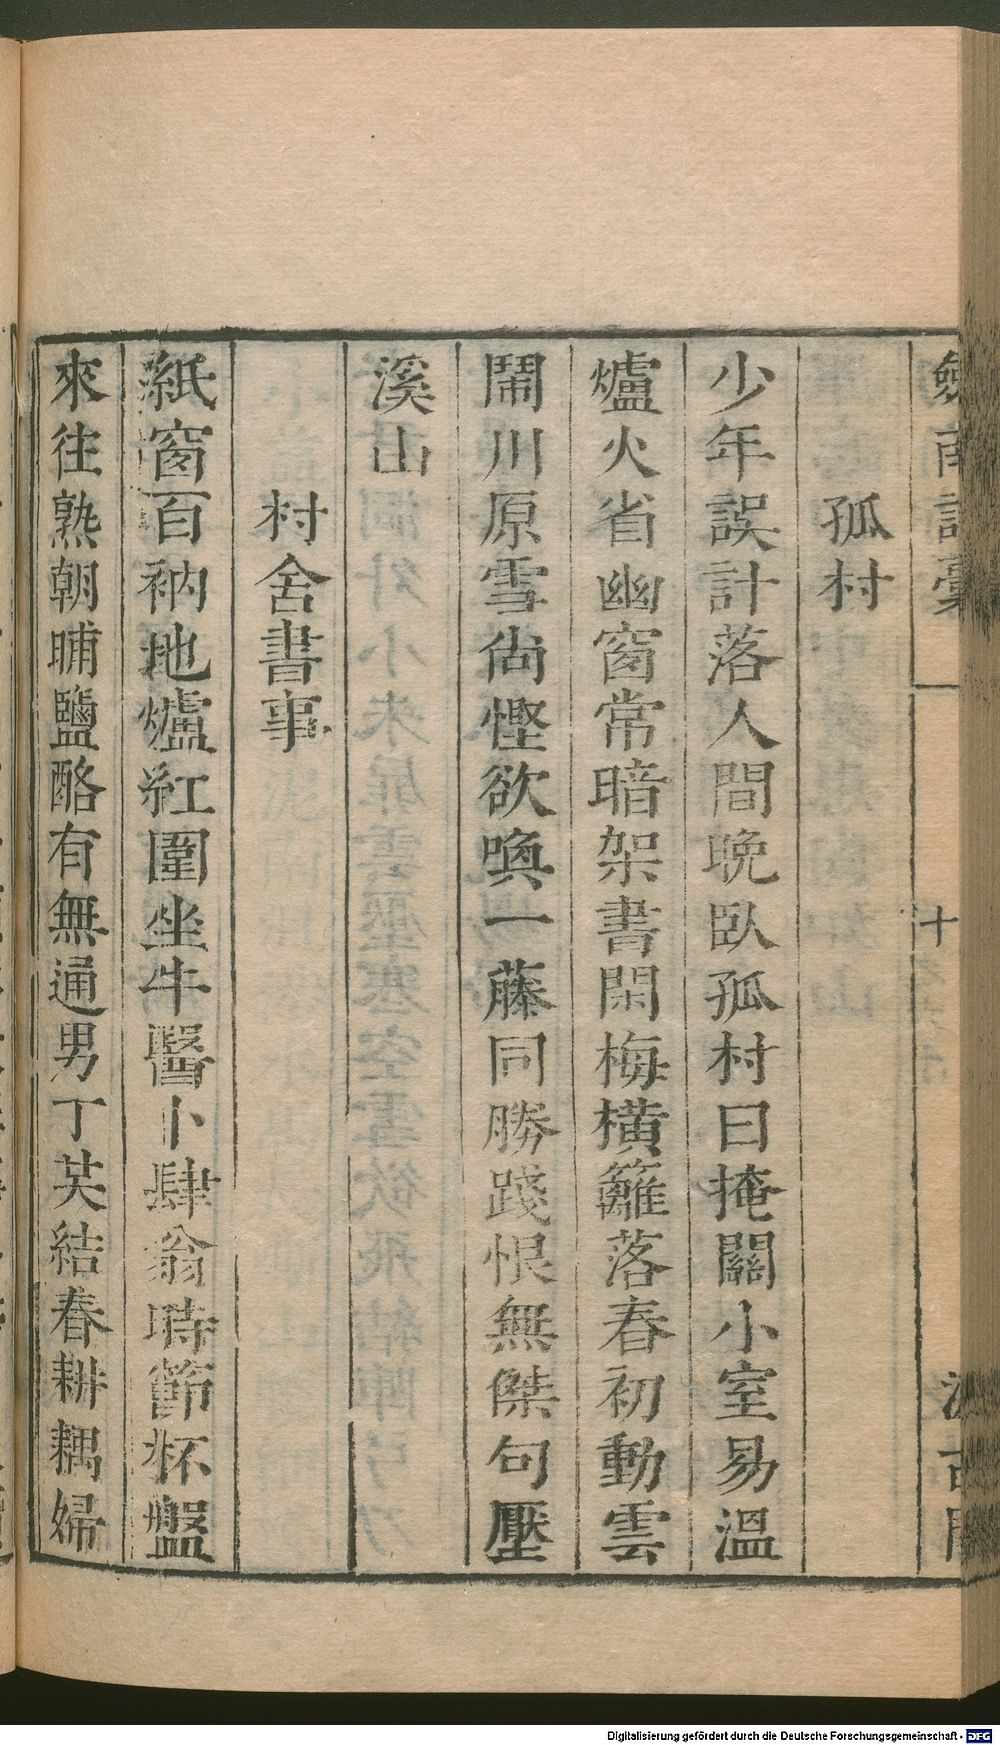 孤村
少年誤計落人間晩臥孤村曰掩關小室易溫
爐火省幽窗常暗架書閑梅橫籬落春初動雲
鬧川原雪尙慳欲喚一藤同勝踐恨無傑句壓
溪山
村舍書事
紙窗百衲地爐紅圍坐牛醫卜肆翁時節杯盤
來往熟朝晡鹽酪有無通男丁共結春耕耦婦
十
Digitalisierung gefördert durch die Deutsche Forschungsgemeinschaft - DFG